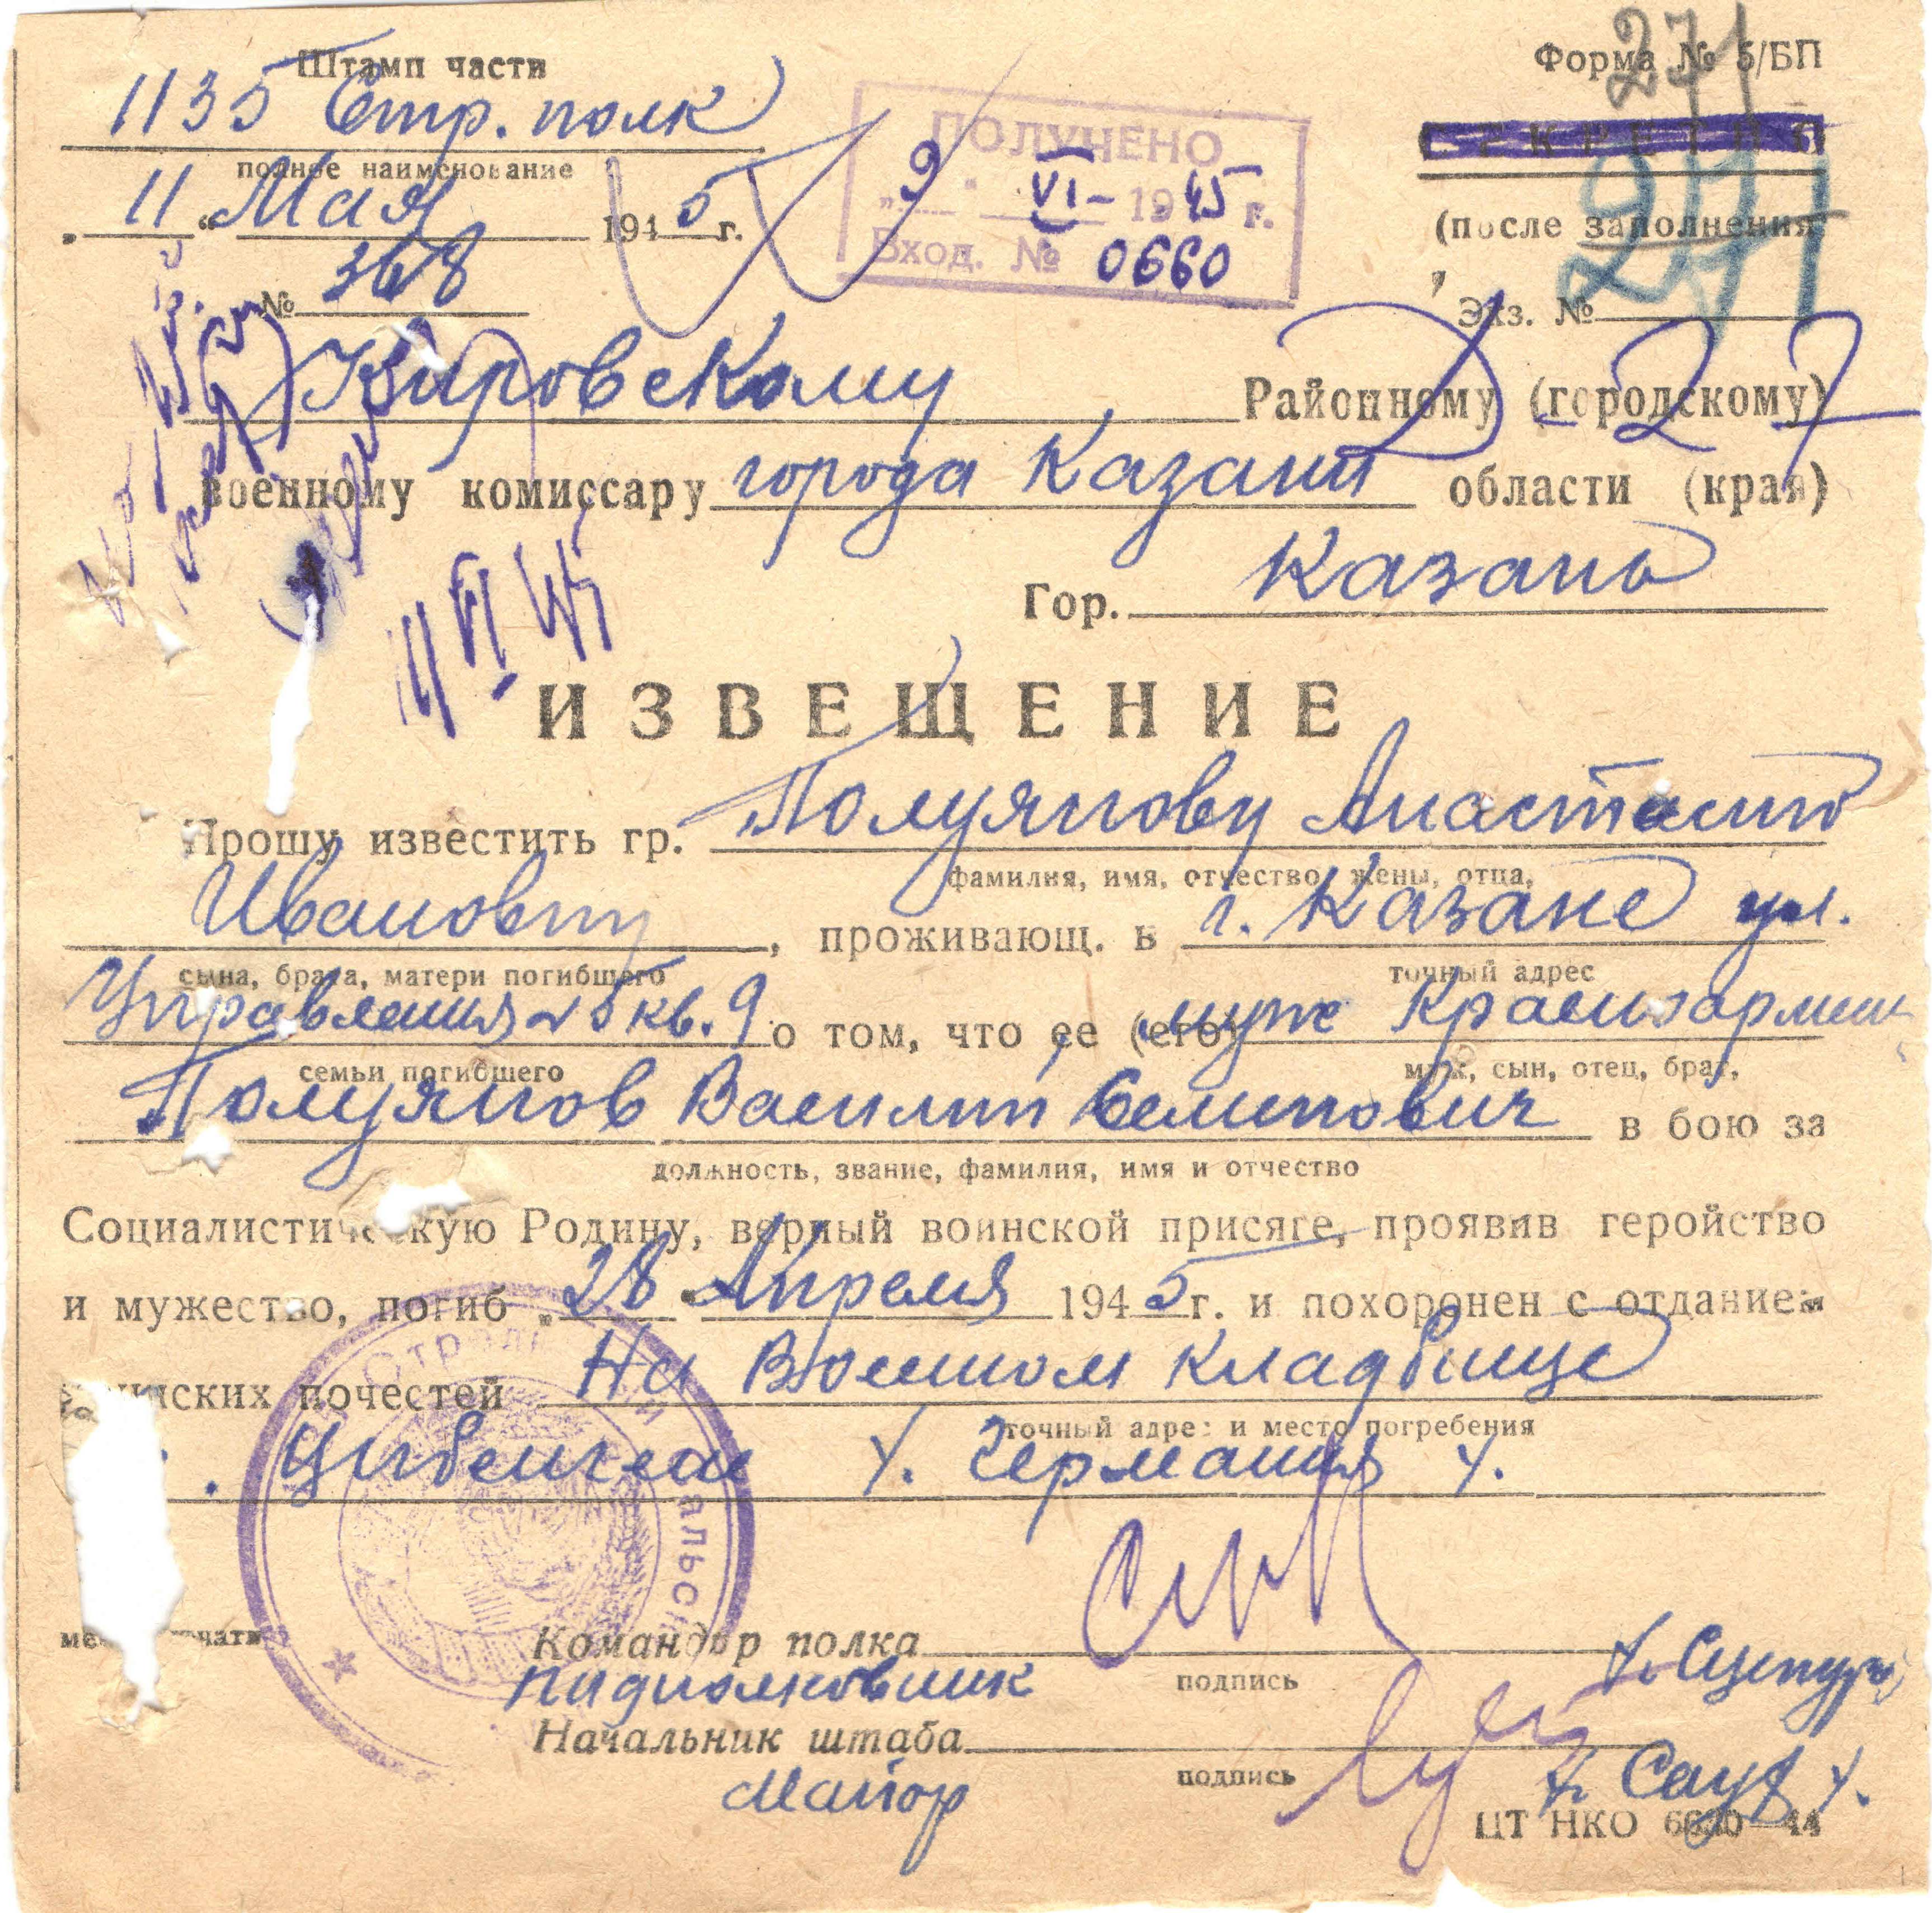 Штамп части
1135 Стр. полк
полное наименование
„ 11 “ Мая 1945 г.
№ 368
ПОЛУЧЕНО
„9“ VI– 1945 г.
Вход. № 0660
271
Форма № 5/БП
СЕКРЕТНО
271
(после заполнения
Экз. №
Кировскому Районному (городскому)
военному комиссару города Казани области (края)
Гор. Казань
11 VI 45
ИЗВЕЩЕНИЕ
Прошу известить гр. Полуянову Анастасию
фамилия, имя, отчество жены, отца,
Ивановну, проживающ. в г. Казане ул.
сына, брата, матери погибшего точный адрес
Управления 5 кв. 9 о том, что ее (его) муж Красноармеец
семьи погибшего муж, сын, отец, брат,
Полуянов Василий Семенович в бою за
должность, звание, фамилия, имя и отчество
Социалистическую Родину, верный воинской присяге, проявив геройство
и мужество, погиб „28“ Апреля 1945 г. и похоронен с отданием
воинских почестей На Военном кладбище
точный адрес и место погребения
Германия
место печати
Командир полка
подполковник
подпись
Начальник штаба
Майор
подпись
ЦТ НКО 6680—44